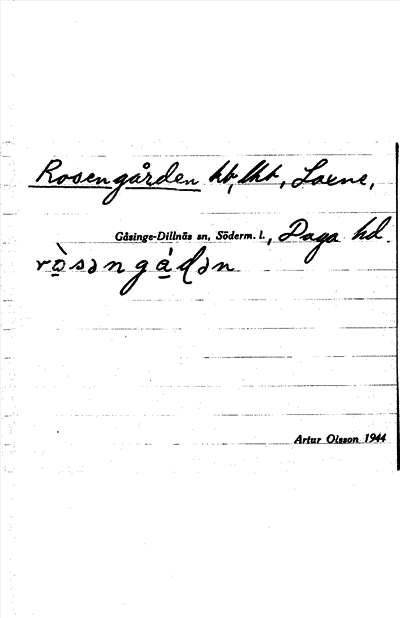 Rosengården ht, lht, Laxne,
Gåsinge-Dillnäs sn, Söderm. l., Daga hd.
rò̱sən gá̱ḍən
Artur Olsson 1944